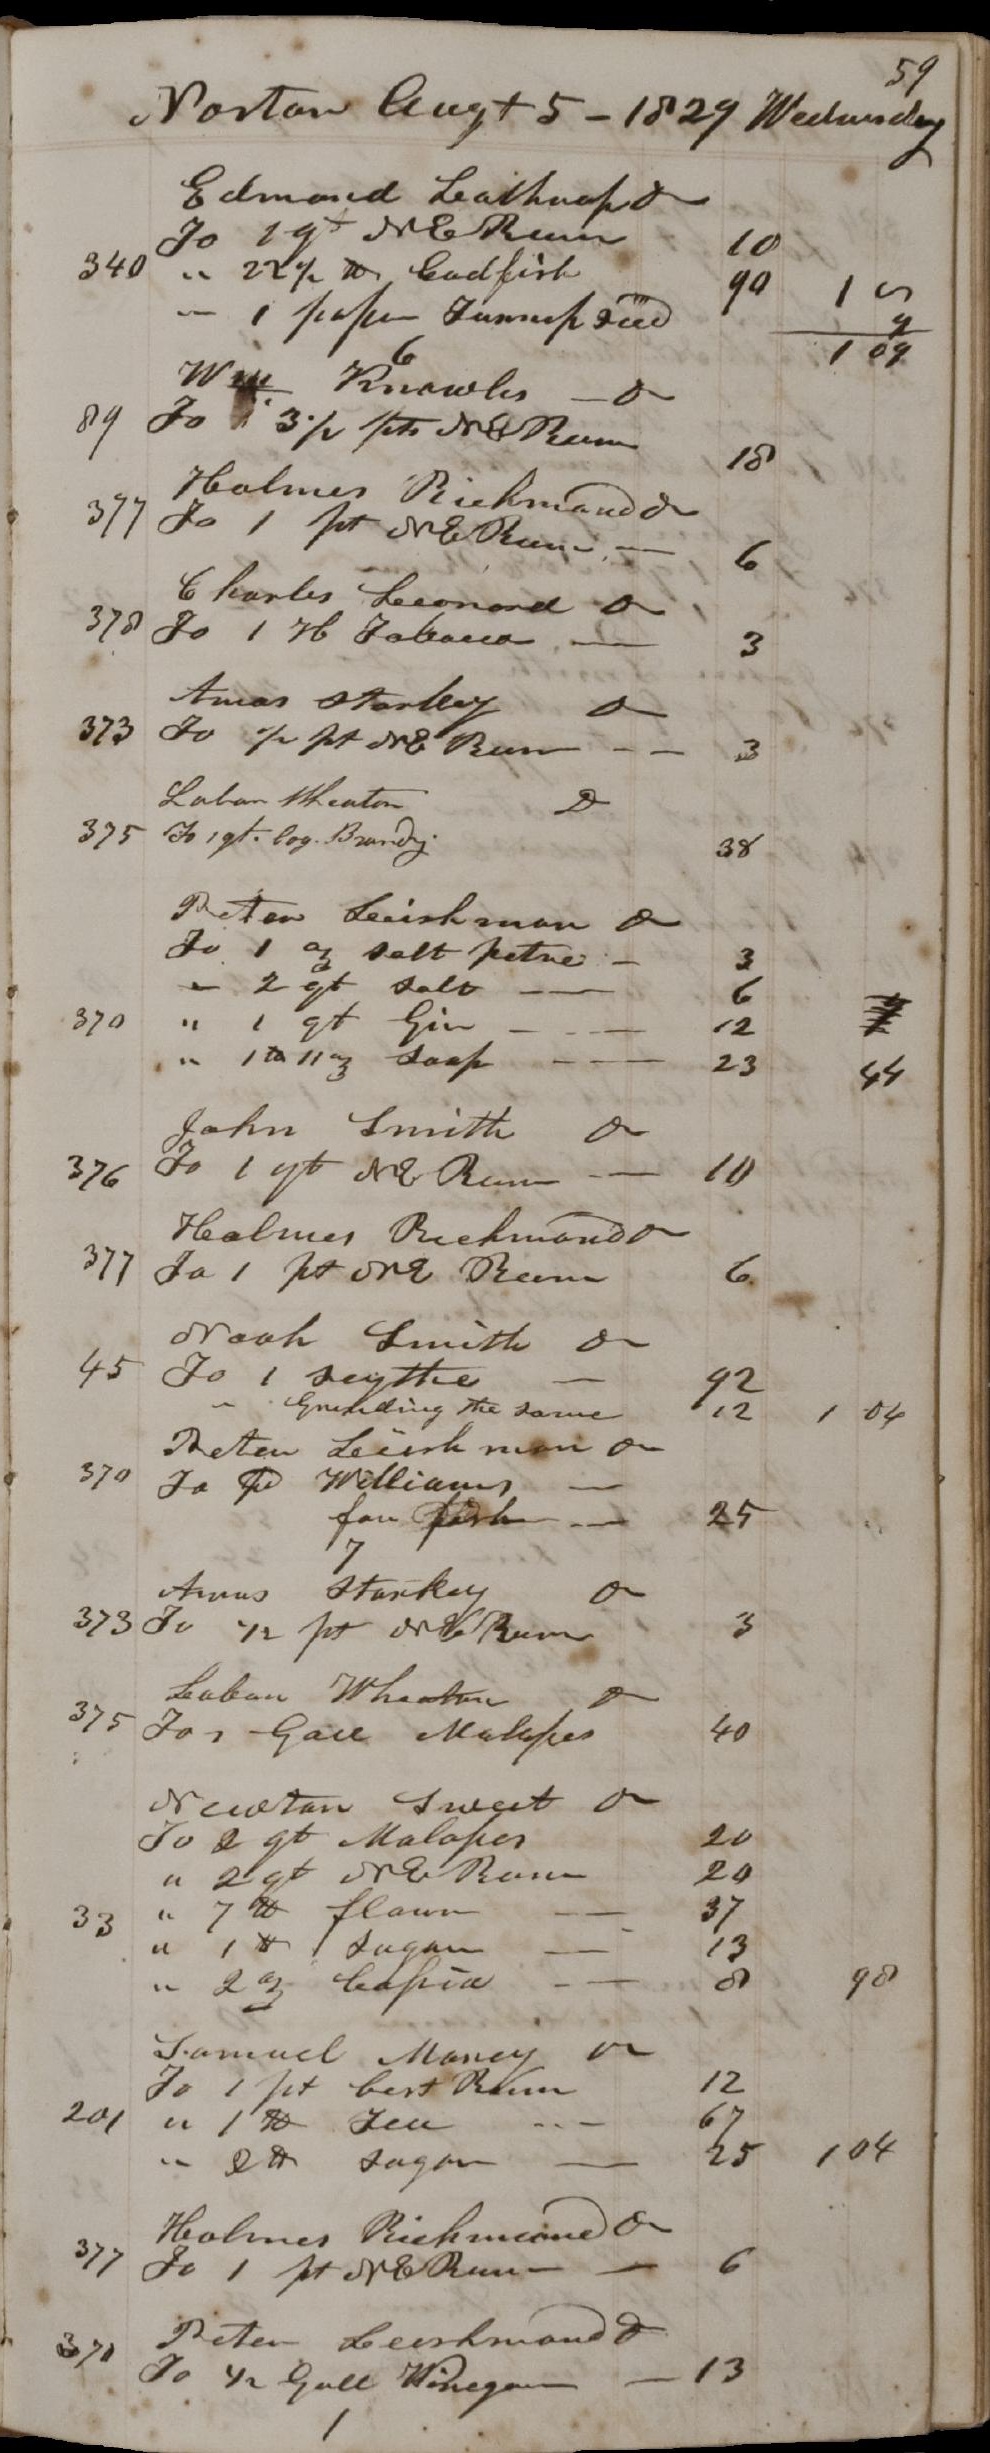 59
Norton Augt 5 - 1829 Wednesday
Edmond Lathrop Dr
To 1 qt NE Rum 10
340 " 22 1/2 lb Codfish 90 1 0
" 1 paper Turnup Seed 9
1 09
6
Wm Knowles Dr
89 To 3 1/2 pts NE Rum 18
Holmes Richmond Dr
377 To 1 pt NE Rum 6
Charles Leonard Dr
378 To 1 H Tobacco 3
Amos Starkey Dr
373 To 1/2 pt NE Rum 3
Laban Wheaton Dr
375 To 1 qt. Cog. Brandy. 38
Peter Leishman Dr
To 1 oz salt petre 3
" 2 qt salt 6
370 " 1 qt Gin 12
" 1 lb 11 oz soap 23 44
John Smith Dr
376 To 1 qt NE Rum 10
Holmes Richmond Dr
377 To 1 pt NE Rum 6
Noah Smith Dr
45 To 1 scythe 92
" Grinding the same 12 1 04
Peter Leishman Dr
370 To pd Williams
for fish 25
7
Amos Starkey Dr
373 To 1/2 pt NE Rum 3
Laban Wheaton Dr
375 To 1 Gall Molasses 40
Newton Sweet Dr
To 2 qt Molasses 20
" 2 qt NE Rum 20
33 " 7 lb flour 37
" 1 lb sugar 13
" 2 oz Casia 8 98
Samuel Morey Dr
To 1 pt best Rum 12
201 " 1 lb Tea 67
" 2 lb sugar 25 1 04
Holmes Richmond Dr
377 To 1 pt NE Rum 6
370 Peter Leishman Dr
To 1/2 Gall Vinegar 13
1